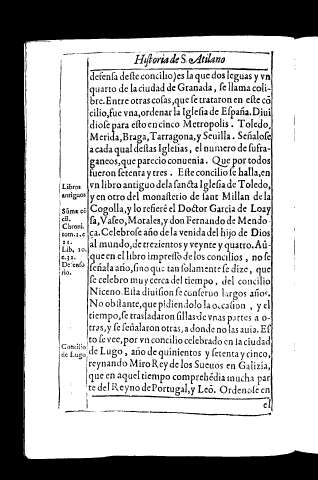 Historia de S. Atilano
defensa deste concilio) es la que dos leguas y vn
quarto de la ciudad de Granada, se llama coli-
bre. Entre otras cosas, que se trataron en este cõ
cilio, fue vna, ordenar la Iglesia de España. Diui
diose para esto en cinco Metropolis. Toledo,
Merida, Braga, Tarragona, y Seuilla. Señalose
a cada qual destas Iglesias, el numero de sufra-
ganeos, que parecio conuenia. Que por todos
fueron setenta y tres. Este concilio se halla, en
vn libro antiguo de la sancta Iglesia de Toledo,
y en otro del monasterio de sant Millan de la
Cogolla, y lo refierẽ el Doctor Garcia de Loay
sa, Vaseo, Morales, y don Fernando de Mendo
ça. Celebrose año de la venida del hijo de Dios
al mundo, de trezientos y veynte y quatro. Aũ-
que en el libro impresso de los concilios, no se
señala año, sino que tan solamente se dize, que
se celebro muy cerca del tiempo, del concilio
Niceno. Esta diuision se conseruo largos años.
No obstante, que pidiendolo la ocasion, y el
tiempo, se trasladaron sillas de vnas partes a o-
tras, y se señalaron otras, a donde no las auia. Es
to se vee, por vn concilio celebrado en la ciudad
de Lugo, año de quinientos y setenta y cinco,
reynando Miro Rey de los Sueuos en Galizia,
que en aquel tiempo comprehẽdia mucha par
te del Reyno de Portugal, y Leõ. Ordenose en
el
Libros
antiguos
Sũma cõ
cil.
Chroni.
tom. 1. c
21.
Lib. 10.
c. 32.
Defenso
rio.
Concilio
de Lugo